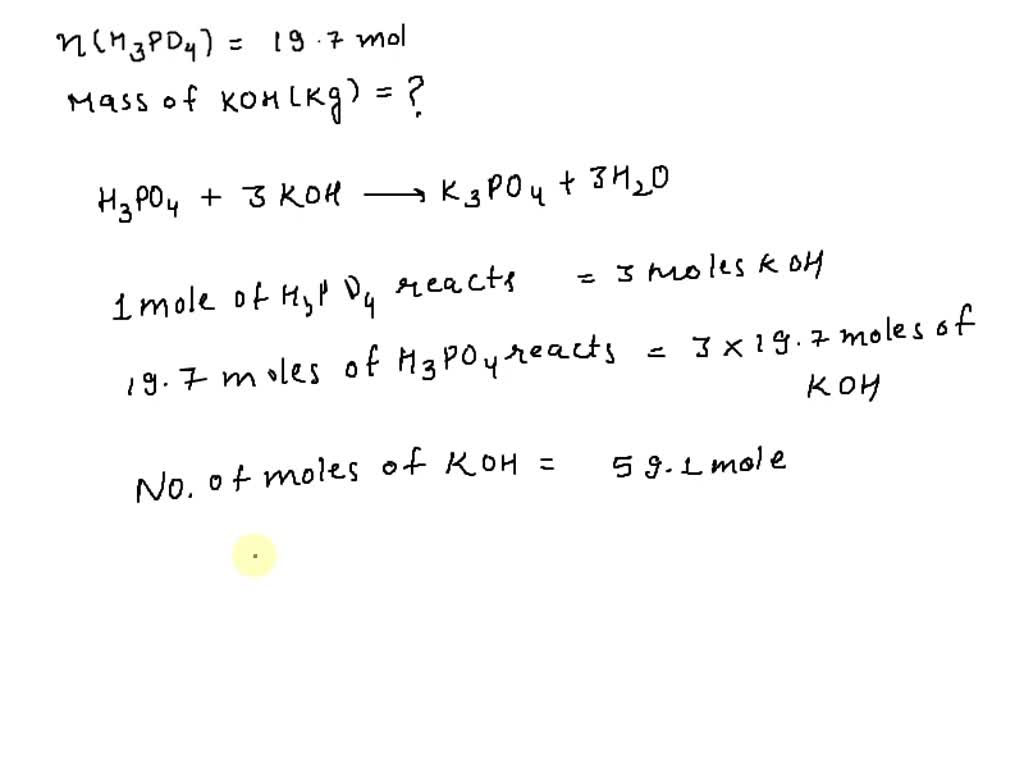 n(H3PO4) = 19.7 mol
Mass of KOH(Kg) = ?
H3PO4 + 3 KOH → K3PO4 + 3H2O
1 mole of H3PO4 reacts = 3 moles KOH
19.7 moles of H3PO4 reacts = 3 × 19.7 moles of
KOH
No. of moles of KOH = 59.1 mole